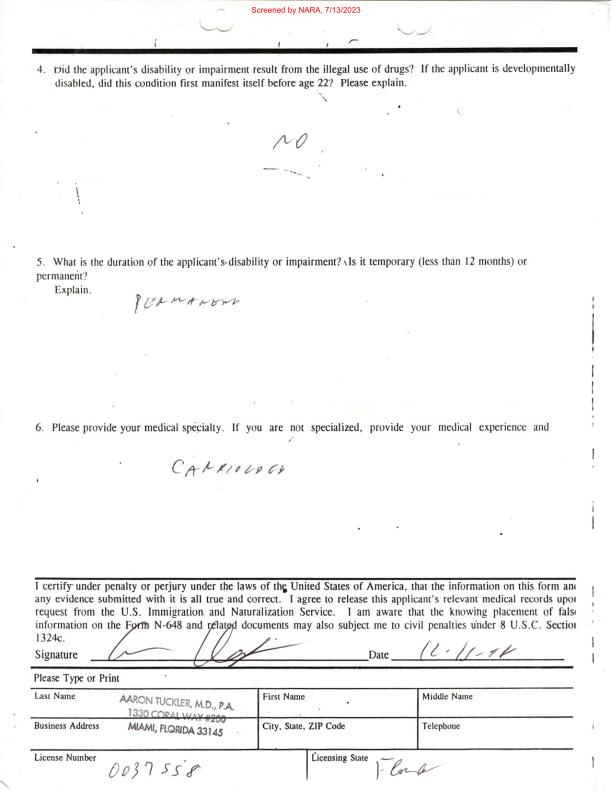 Screened by NARA, 7/13/2023
4. Did the applicant's disability or impairment result from the illegal use of drugs? If the applicant is developmentally
disabled, did this condition first manifest itself before age 22? Please explain.
NO
5. What is the duration of the applicant's disability or impairment? Is it temporary (less than 12 months) or
permanent?
Explain.
PERMANENT
6. Please provide your medical specialty. If you are not specialized, provide your medical experience and
CARDIOLOGY
I certify under penalty or perjury under the laws of the United States of America, that the information on this form and
any evidence submitted with it is all true and correct. I agree to release this applicant's relevant medical records upon
request from the U.S. Immigration and Naturalization Service. I am aware that the knowing placement of false
information on the Form N-648 and related documents may also subject me to civil penalties under 8 U.S.C. Section
1324c.
Signature Date
Please Type or Print
Last Name AARON TUCKLER, M.D., P.A. First Name Middle Name
1330 CORAL WAY #200
Business Address MIAMI, FLORIDA 33145 City, State, ZIP Code Telephone
License Number 0037558 Licensing State Florida